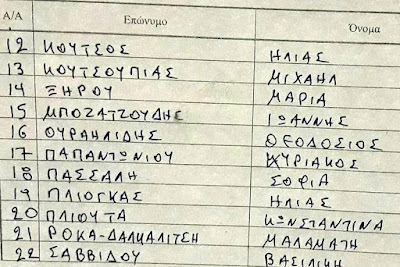 Α/Α Επώνυμο Όνομα
12 ΚΟΥΤΣΟΣ ΗΛΙΑΣ
13 ΚΟΥΤΣΟΥΠΙΑΣ ΜΙΧΑΗΛ
14 ΞΗΡΟΥ ΜΑΡΙΑ
15 ΜΠΟΖΑΤΖΟΥΔΗΣ ΙΩΑΝΝΗΣ
16 ΟΥΡΑΗΛΙΔΗΣ ΘΕΟΔΟΣΙΟΣ
17 ΠΑΠΑΝΤΩΝΙΟΥ ΚΥΡΙΑΚΟΣ
18 ΠΑΣΣΑΛΗ ΣΟΦΙΑ
19 ΠΛΙΟΓΚΑΣ ΗΛΙΑΣ
20 ΠΛΙΟΥΤΑ ΚΩΝΣΤΑΝΤΙΝΑ
21 ΡΟΚΑ-ΔΑΛΚΑΛΙΤΣΗ ΜΑΛΑΜΑΤΗ
22 ΣΑΒΒΙΔΟΥ ΒΑΣΙΛΙΚΗ